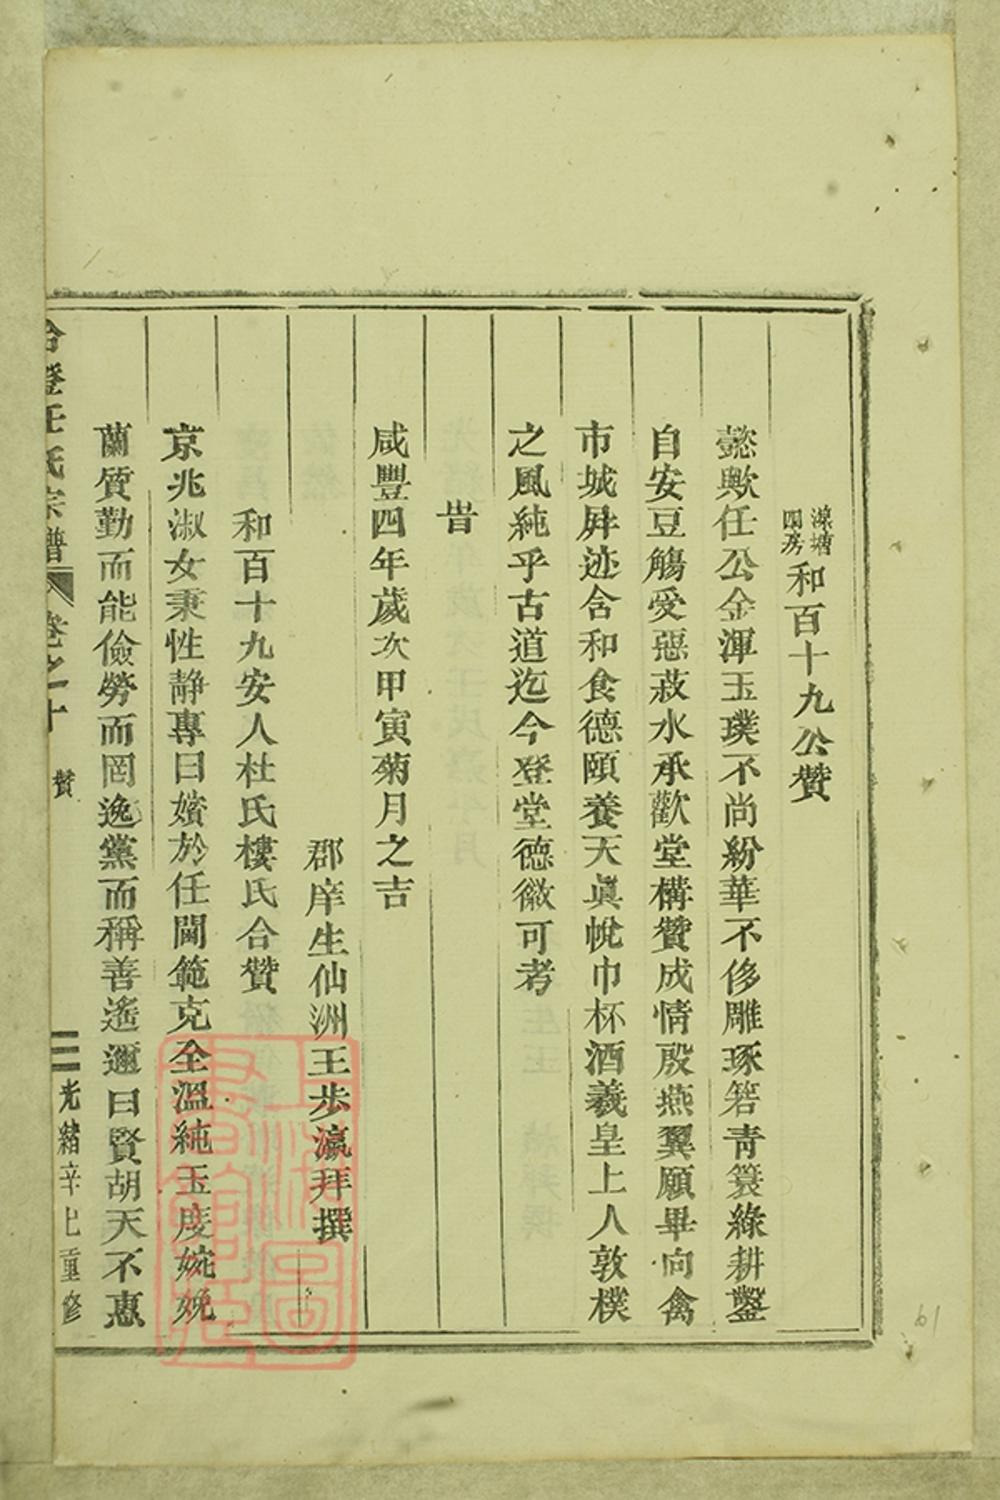 濼塘四房和百十九公贊
懿歟任公金渾玉璞不尚紛華不侈雕琢箬青簑綠耕鑿
自安豆觴受惡菽水承歡堂構贊成情殷燕翼願畢向禽
市城屏迹含和食德頤養天眞帨巾杯酒羲皇上人敦樸
之風純乎古道迄今登堂德徽可考
旹
咸豐四年歲次甲寅菊月之吉
郡庠生仙洲王步瀛拜撰
和百十九安人杜氏樓氏合贊
京兆淑女秉性靜專曰嬪於任閫範克全溫純玉度婉娩
蘭質勤而能儉勞而罔逸黨而稱善遙邇曰賢胡天不惠
任氏宗譜 卷之十 贊 三 光緒辛巳重修
上海圖書館藏
61